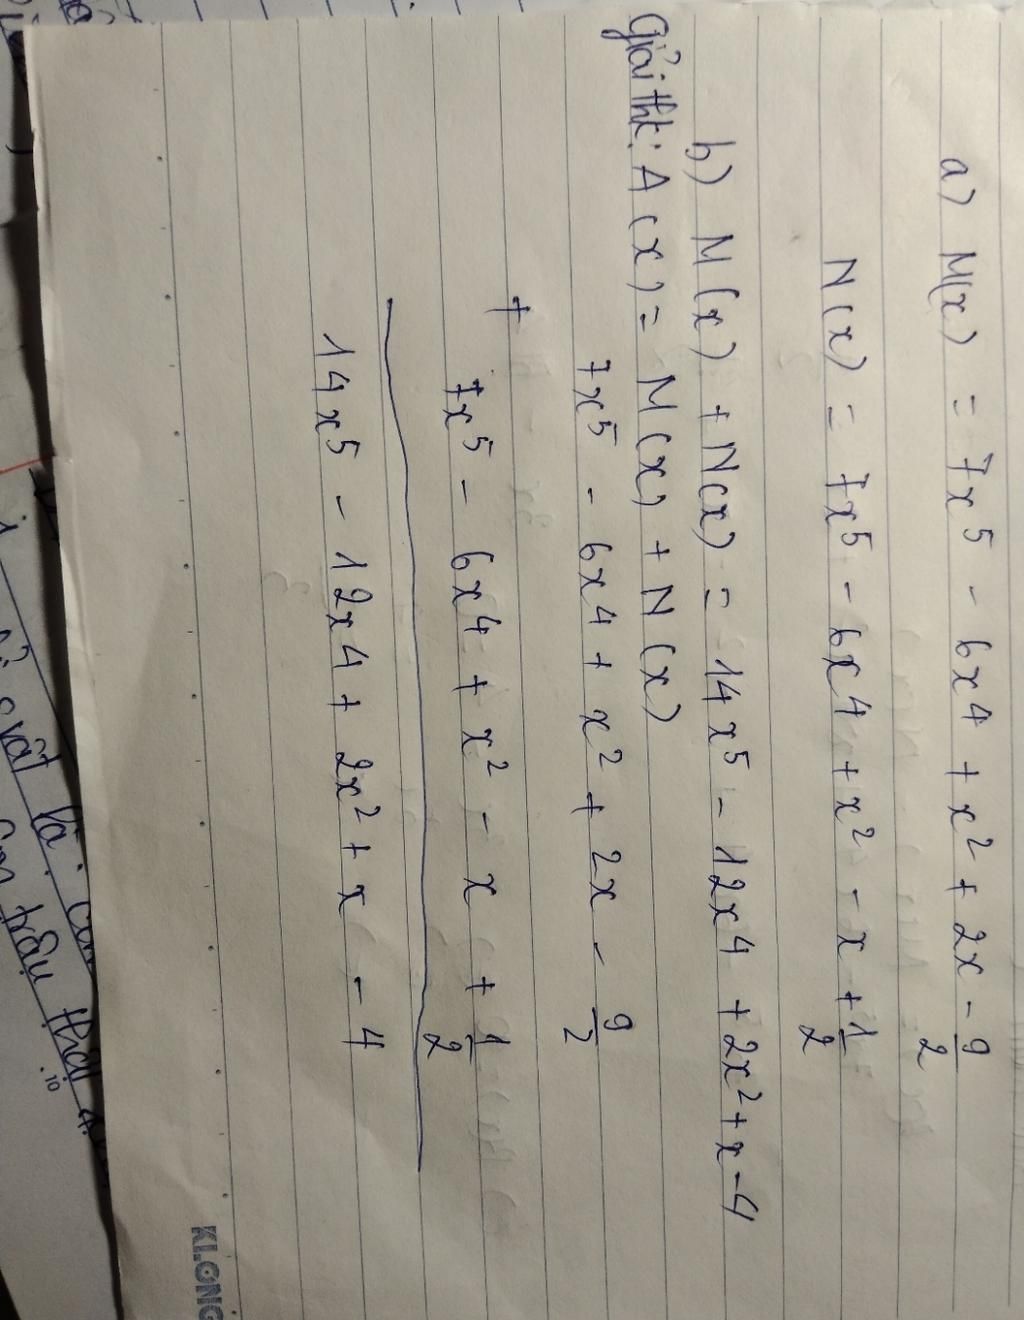 a) M(x) = 7x⁵ - 6x⁴ + x² + 2x - 9/2
N(x) = 7x⁵ - 6x⁴ + x² - x + 1/2
b) M(x) + N(x) = 14x⁵ - 12x⁴ + 2x² + x - 4
Giải tht: A(x) = M(x) + N(x)
7x⁵ - 6x⁴ + x² + 2x - 9/2
+
7x⁵ - 6x⁴ + x² - x + 1/2
14x⁵ - 12x⁴ + 2x² + x - 4
KLONG
vật là
trâu thật
10